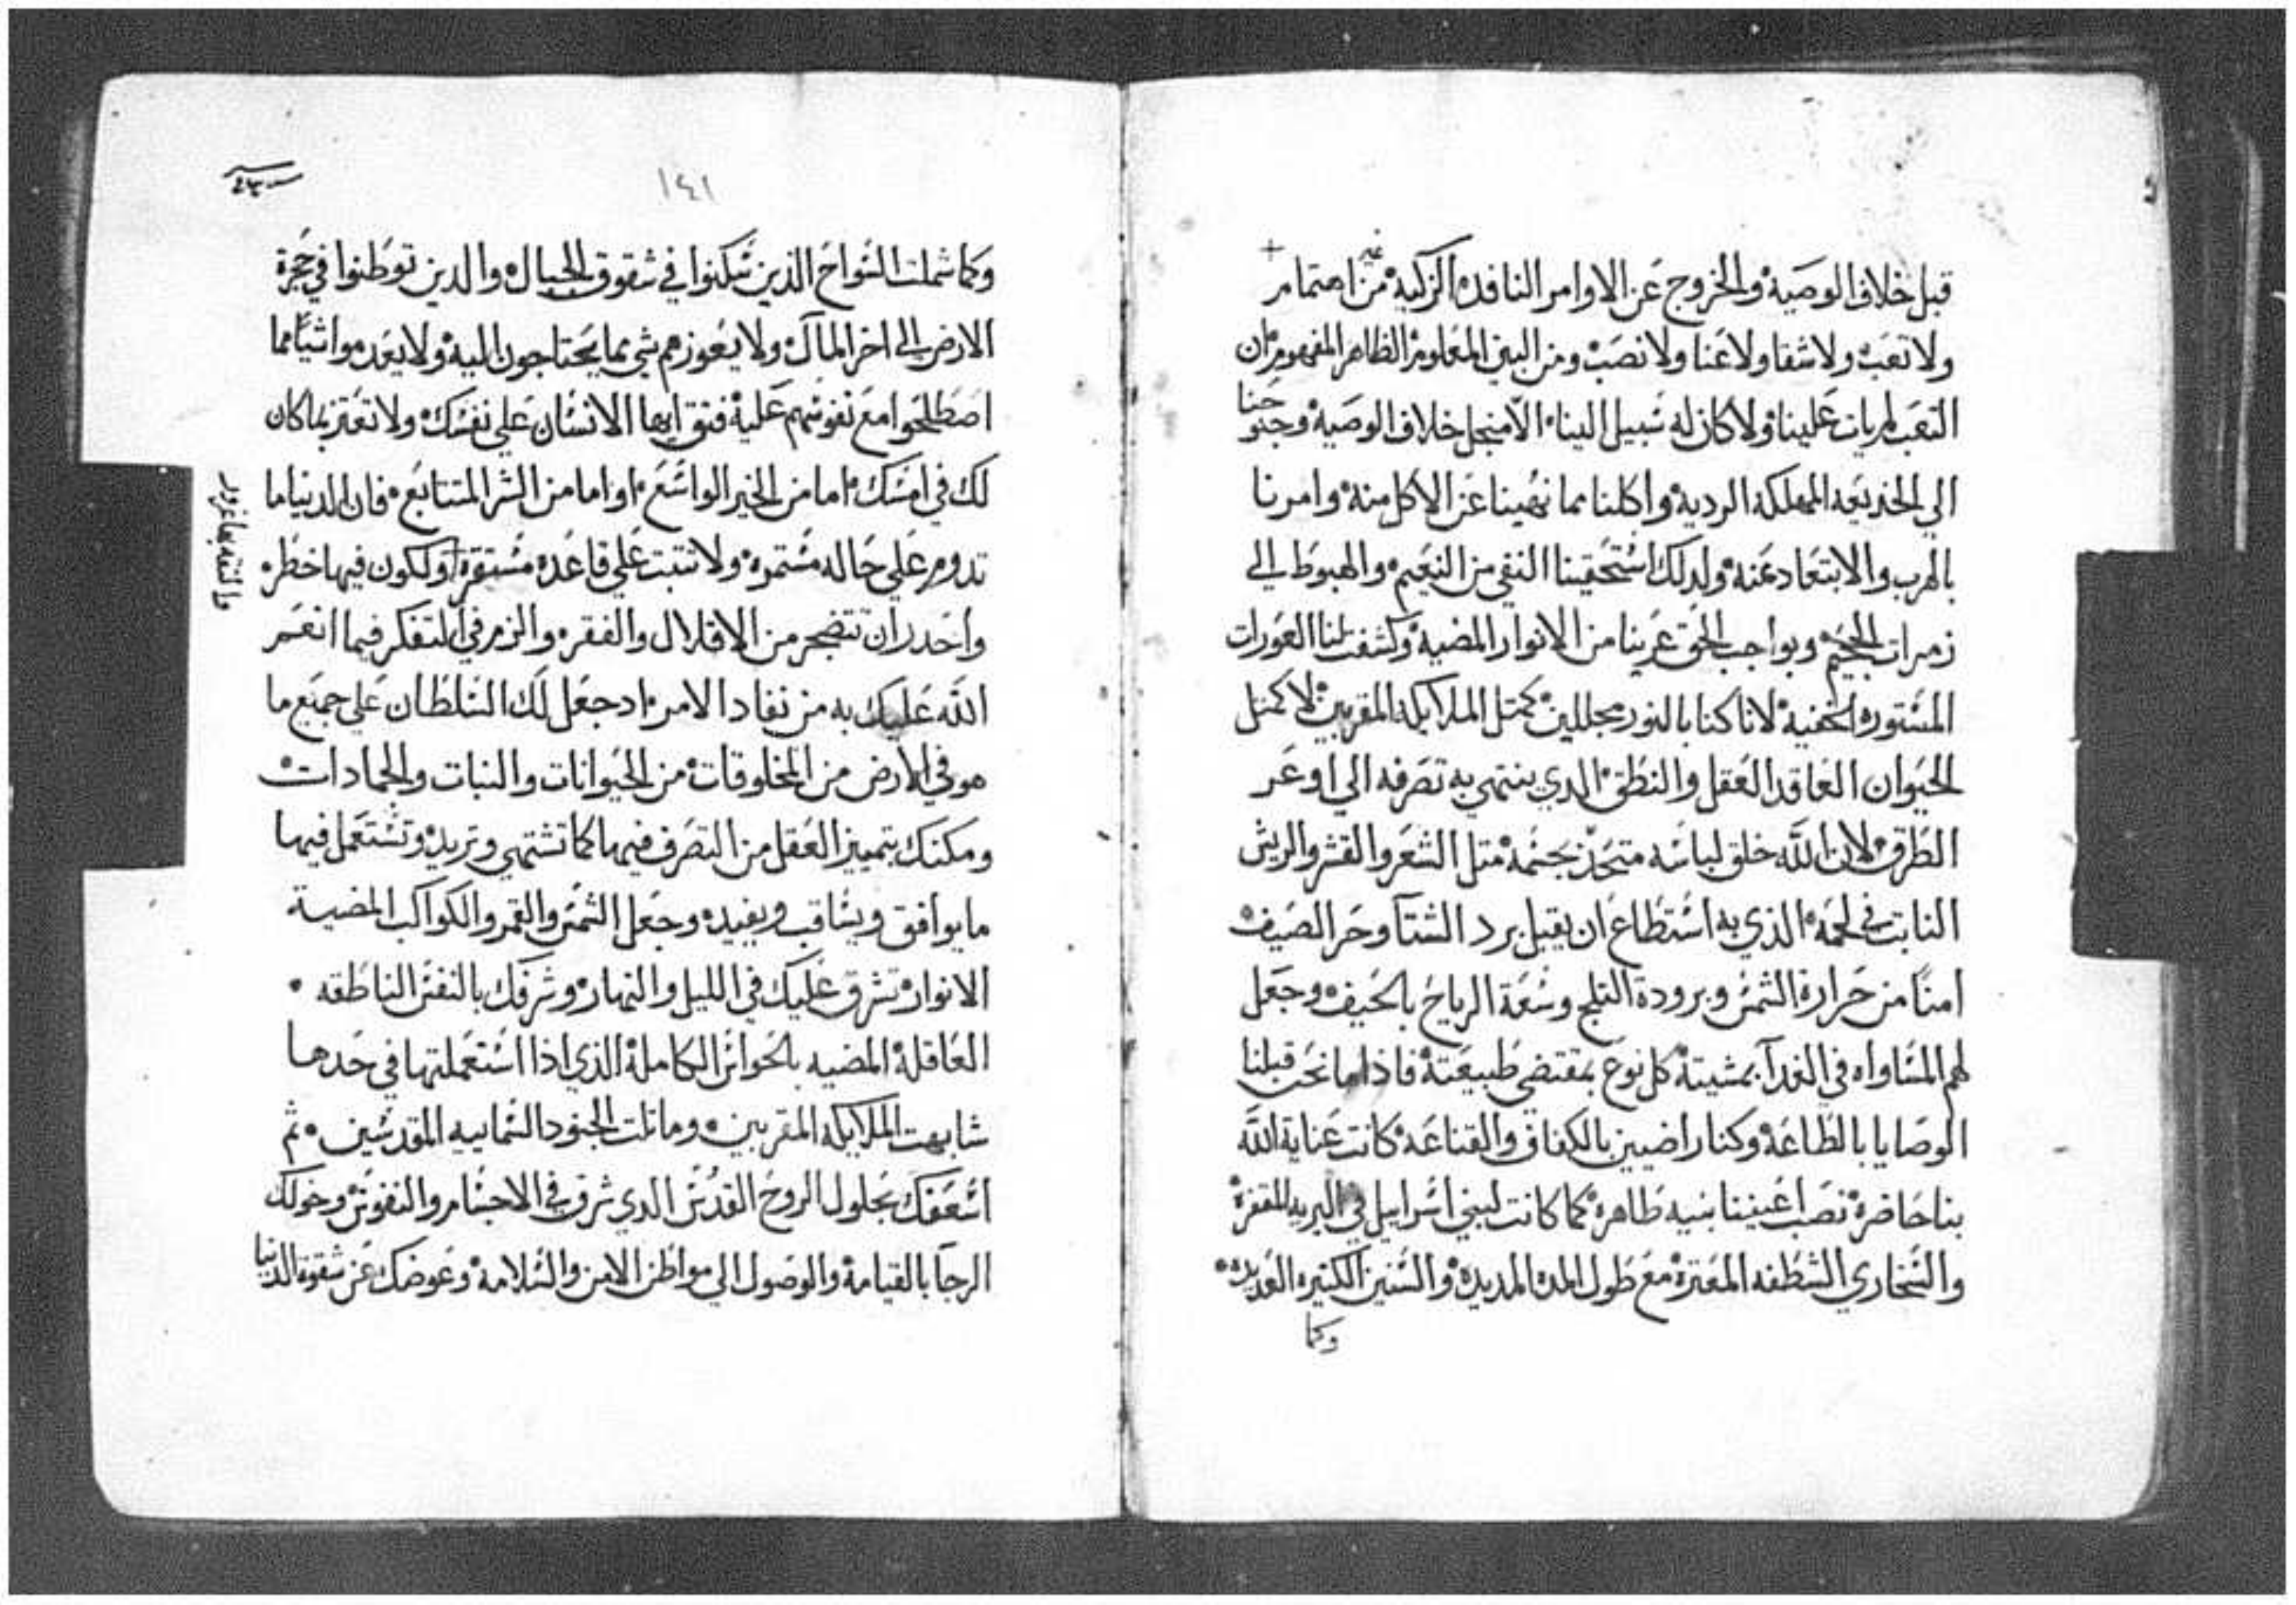 غير
قبل خلاف الوصية والخروج عن الاوامر النافده الزكية من اهتمام
ولا تعب ولا شقا ولا عنا ولا نصب ومن البين المعلوم الظاهر المفهوم ان
التعب لم يات علينا ولا كان له سبيل الينا الا منجل خلاف الوصية وجنو حنا
الي الخديعه المهلكه الرديه واكلنا مما نهينا عن الاكل منه وامرنا
بالهرب والابتعاد عنه ولدلك استحقينا النفي من النعيم والهبوط الي
زمرات الجحيم وبواجب الحق عرينا من الانوار المضية وكشفت لنا العورات
المستوره الخفية لانا كنا بالنور مجللين كمتل الملايكه المقربين لا كمتل
الحيوان الفاقد العقل والنطق الدي ينتهي به تصرفه الي اوعر
الطرق لان الله خلق لباسه متحد بجسمه متل الشعر والقشر والريش
النابت في لحمه الذي به استطاع ان يقبل برد الشتا وحر الصيف
امنًا من حرارة الشمس وبرودة التلج وسعة الرياح بالحيف وجعل
لهم المساواه في الغدآ بمشيتة كل نوع بمقتضي طبيعتة فاذاما نحن قبلنا
الوصايا بالطاعة وكنا راضيين بالكفاف والقناعة كانت عناية الله
بنا حاضرة نصب اعيننا بنيه طاهرة كما كانت لبني اسراييل في البريه المقفرة
والصحاري الشظفه المغترة مع طول المدة المديدة والسنين الكتيره العديدة
وكما
١٤١
وكما شملت السواح الذين سكنوا في شقوق الجبال والدين توطنوا في حجرة
الارض الي اخر المآل ولا يعوزهم شي مما يحتاجون اليه ولا يعدموا شيًا مما
اصطلحوا مع نفوسهم عليه فتق ايها الانسان علي نفسك ولا تغتر بما كان
لك في امسك اما من الخير الواسع او اما من الشر المتتابع فان الدنيا ما
تدوم علي حاله مستمرة ولا تتبت علي قاعده مستقرة ولكون فيها خطره
واحدر ان تتضجر من الاقلال والفقر والزم في التفكر فيما انعم
الله عليك به من نفاد الامر اد جعل لك السلطان علي جميع ما
هو في الارض من المخلوقات من الحيوانات والنبات والجمادات
ومكنك بتمييز العقل من التصرف فيها كما تشتهي وتريد وتستعمل فيها
ما يوافق ويساقب ويفيد وجعل الشمس والقمر والكواكب المضية
الانوار تشرق عليك في الليل والنهار وشرفك بالنفس الناطقه
العاقلة المضيه بالحواس الكاملة الذي اذا استعملتها في حدها
شابهت الملايكه المقربين وماتلت الجنود السماييه المقدسين تم
اسعفك بحلول الروح القدس الدي شرق في الاجسام والنفوس وخولك
الرجآ بالقيامة والوصول الي مواطن الامن والسلامة وعوضك عن شقوة الدنيا